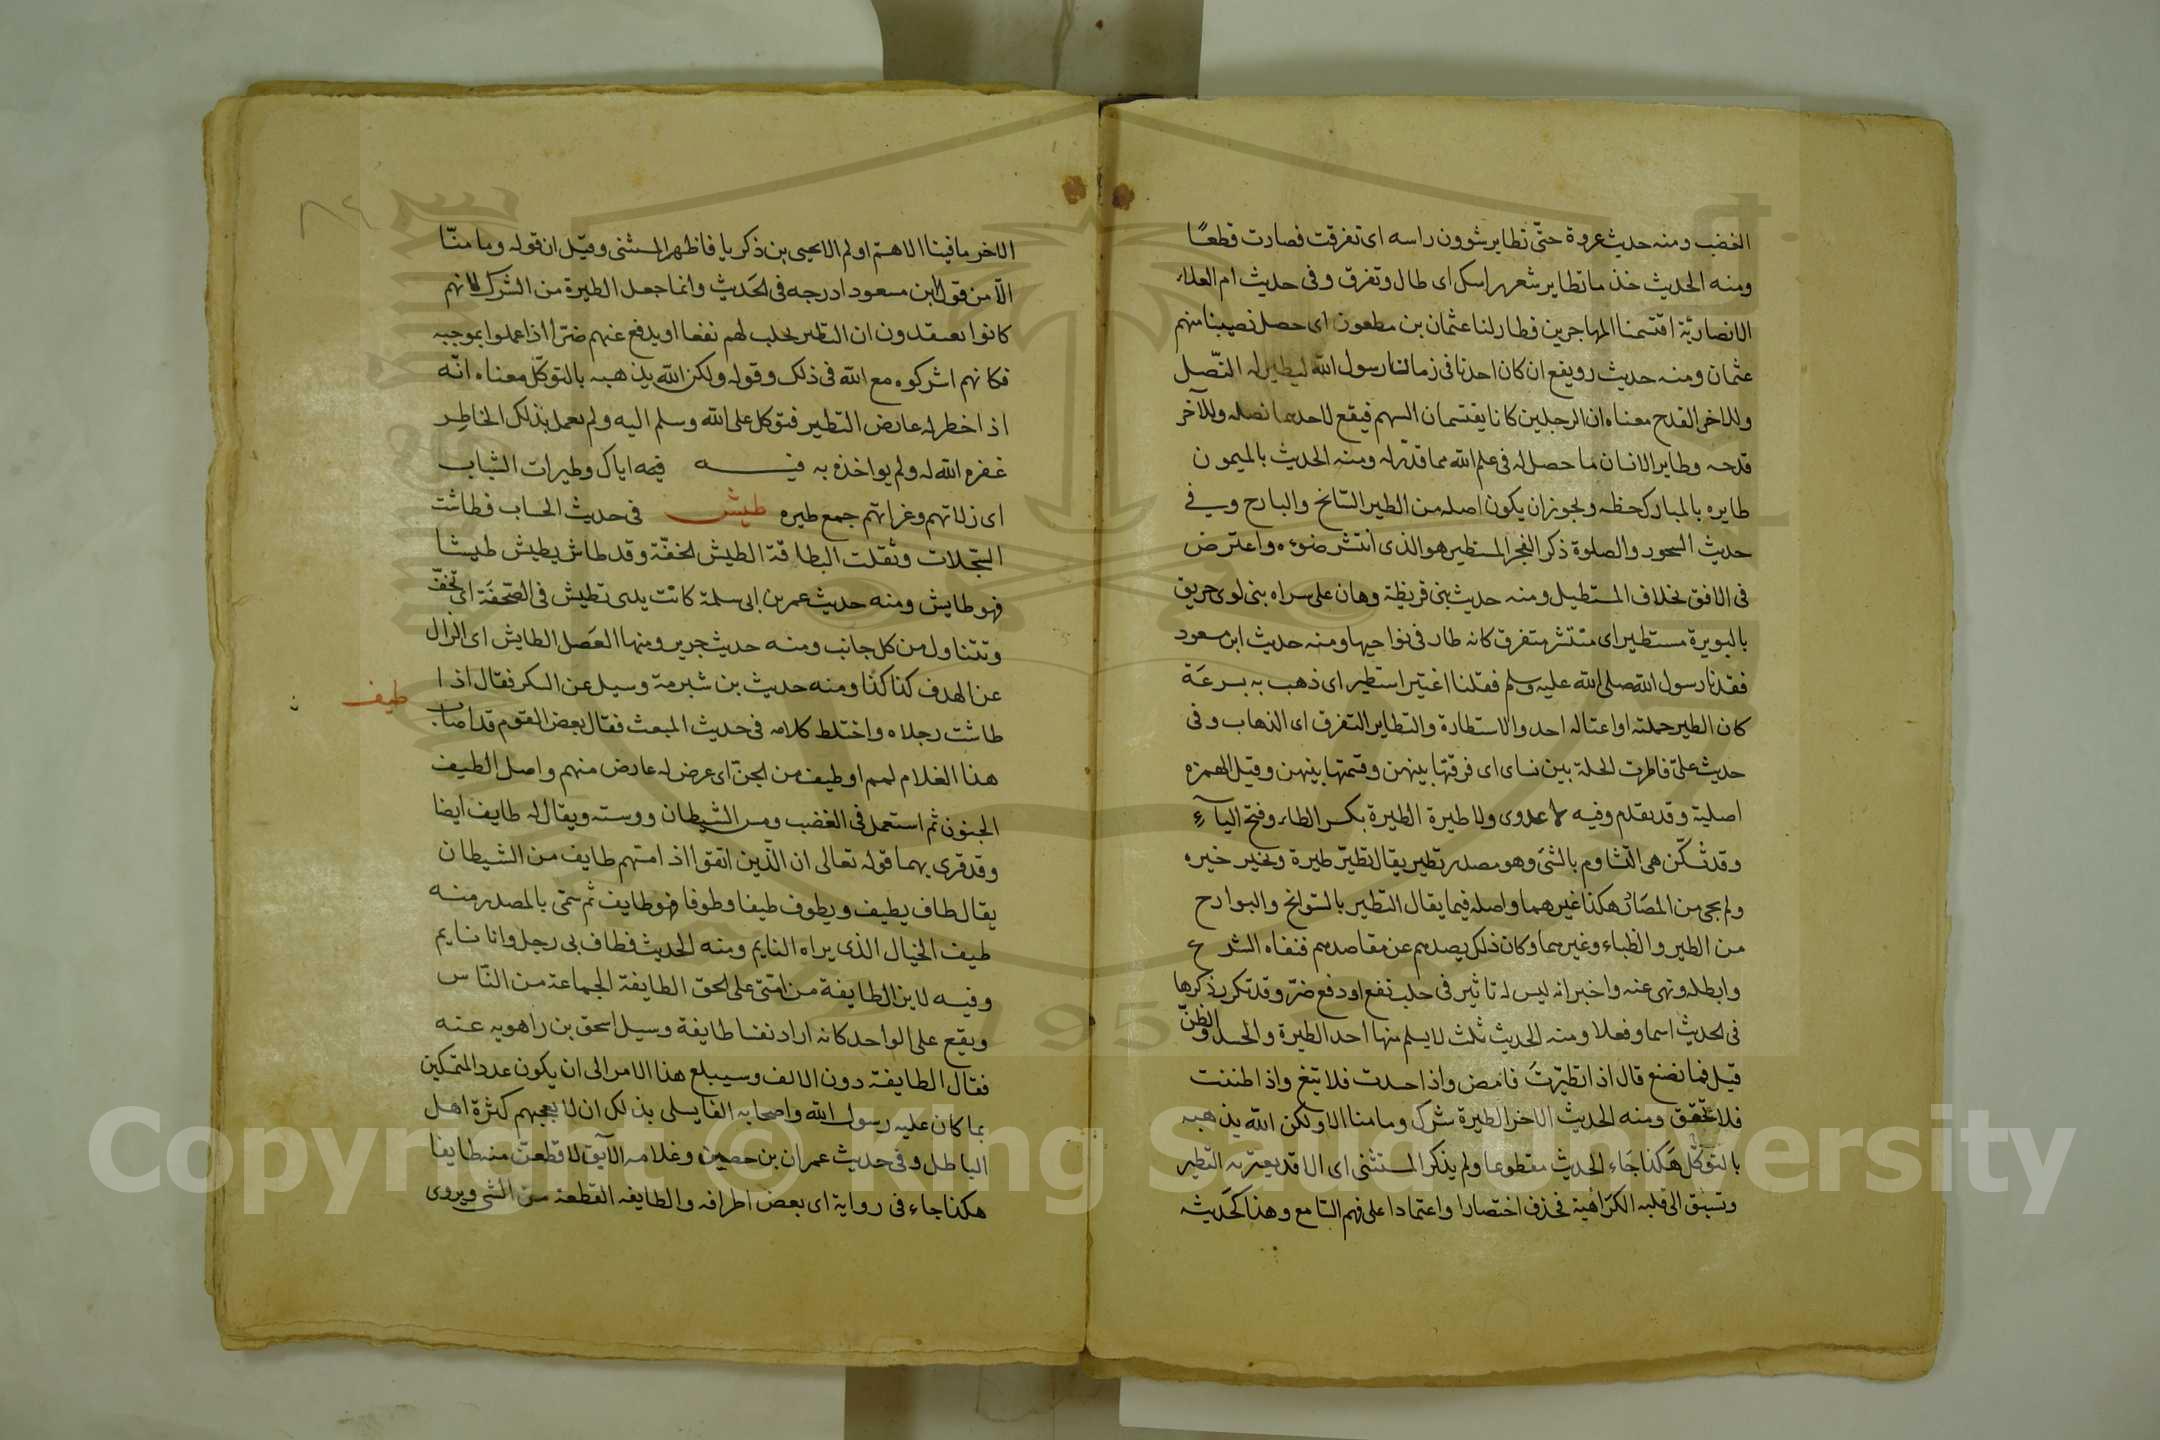 الغضب ومنه حديث عروة حتّى تطاير شوون راسه اى تفرقت فصارت قطعًا
ومنه الحديث خذ ما تطاير شعر راسك اى طال وتفرق وفى حديث ام العلاء
الانصاريّة اقتسمنا المهاجرين فطار لنا عثمان بن مظعون اى حصل نصيبنا منهم
عثمان ومنه حديث رويفع ان كان احدنا فى زمان رسول الله ليطير له النّصل
وللاخر القدح معناه ان الرجلين كانا يقتسمان السهم فيقع لاحدهما نصله وللآخر
قدحه وطاير الانسان ما حصل له فى علم الله مما قدّر له ومنه الحديث بالميمون
طايره بالمبارك حظه ويجوز ان يكون اصله من الطير السّانح والبارح وفي
حديث السحور والصلوة ذكر الفجر المستطير هو الذى انتشر ضوءه واعترض
فى الافق بخلاف المستطيل ومنه حديث بنى قريظة وهان على سراه بنى لوى حريق
بالبويرة مستطير اى منتشر متفرق كانه طار فى نواحيها ومنه حديث ابن مسعود
فقدنا رسول الله صلى الله عليه وسلم فقلنا اغتير استطير اى ذهب به بسرعَة
كان الطير حملته او اغتاله احد والاستطارة والتطاير التفرق اى الذهاب وفى
حديث علىّ فاطرت الحلة بين نساى اى فرقتها بينهن وقسمتها بينهن وقيل الهمزه
اصلية وقد تقدم وفيه لا عدوى ولا طيرة الطيرة بكسر الطاء وفتح اليآء
وقد تُسكّن هى التّشاوم بالشئ وهو مصدر تطير يقال تطيّر طيرة وتخير خيره
ولم يجى من المصَادر هكذا غيرهما واصله فيما يقال التطير بالسّوانح والبوارح
من الطير والظباء وغيرهما وكان ذلك يصدهم عن مقاصدهم فنفاه الشرع
وابطله ونهى عنه واخبر انه ليس له تاثير فى جلب نفع او دفع ضرّ وقد تكرر ذكرها
فى الحديث اسما وفعلا ومنه الحديث ثلث لا يسلم منها احد الطيرة والحسد والظنّ
قيل فما نصنع قال اذا تطيّرتَ فامض واذا حسدت فلا تبغ واذا ظننت
فلا تحقق ومنه الحديث الاخر الطيرة شرك وما منا الا ولكن الله يذهبه
بالتوكّل هَكذا جَاء الحديث مقطوعا ولم يذكر المستثنى اى الا قد يعتريه التطير
وتسبق الى قلبه الكرَاهية فحذف اختصارا واعتمادا على فهم السّامع وهذا كحَديثه
الاخر ما فينا الا هتم او لم الا يحيى بن ذكريا فاظهر المستثنى وقيل ان قوله وما منّا
الّا من قول ابن مسعود ادرجه فى الحَديث وانما جعل الطيرة من الشرك لانهم
كانوا يعتقدون ان التطير يجلب لهم نفعا او يدفع عنهم ضرّا اذا عملوا بموجبه
فكانهم اشركوه مع الله فى ذلك وقوله ولكن الله يذهبه بالتوكّل معناه انّه
اذا خطر له عارض التطير فتوكل على الله وسلم اليه ولم يعمل بذلك الخاطِر
غفره الله له ولم يواخذه به فيه فيه اياك وطيرات الشباب
اى زلاتهم وغراتهم جمع طيره طيش فى حديث الحساب فطاشت
السّجلات وثقلت البطاقة الطيش لخفّة وقد طاش يطيش طيشا
فهو طايش ومنه حديث عمر بن ابى سلمة كانت يدى تطيش فى الصّحفَة اى تخفّ
وتتناول من كل جانب ومنه حديث جرير ومنها العَصل الطايش اى الزال
عن الهدف كذا كذا ومنه حديث بن شبرمة وسيل عن السكر فقال اذا
طيف
طاشت رجلاه واختلط كلامه فى حديث المبعث فقال بعض القوم قد اصاب
هذا الغلام لمم او طيف من الجنّ اى عرض له عارض منهم واصل الطيف
الجنون ثم استعمل فى الغضب ومس الشيطان ووسته ويقال له طايف ايضا
وقد قرى بهما قوله تعالى ان الّذين اتقوا اذا مسّهم طايف من الشيطان
يقال طاف يطيف ويطوف طيفا وطوفا فهو طايف ثم سمّى بالمصدر منه
طيف الخيال الذى يراه النايم ومنه الحديث فطاف بى رجل وانا نايم
وفيه لا يزال طايفة من امّتى على الحق الطايفة الجماعة من النّاس
ويقع على الواحد كانه اراد نفسا طايفة وسيل اسحق بن راهويه عنه
فقال الطايفة دون الالف وسيبلغ هذا الامر الى ان يكون عدد المتمسكين
بما كان عليه رسول الله واصحابه الفا يسلى بذلك ان لا يعجبهم كثرة اهل
الباطل وفى حديث عمران بن حصين وغلامه الآبق لاقطعنّ منه طايفا
هكذا جاء فى رواية اى بعض اطرافه والطايفه القطعة من الشى ويروى